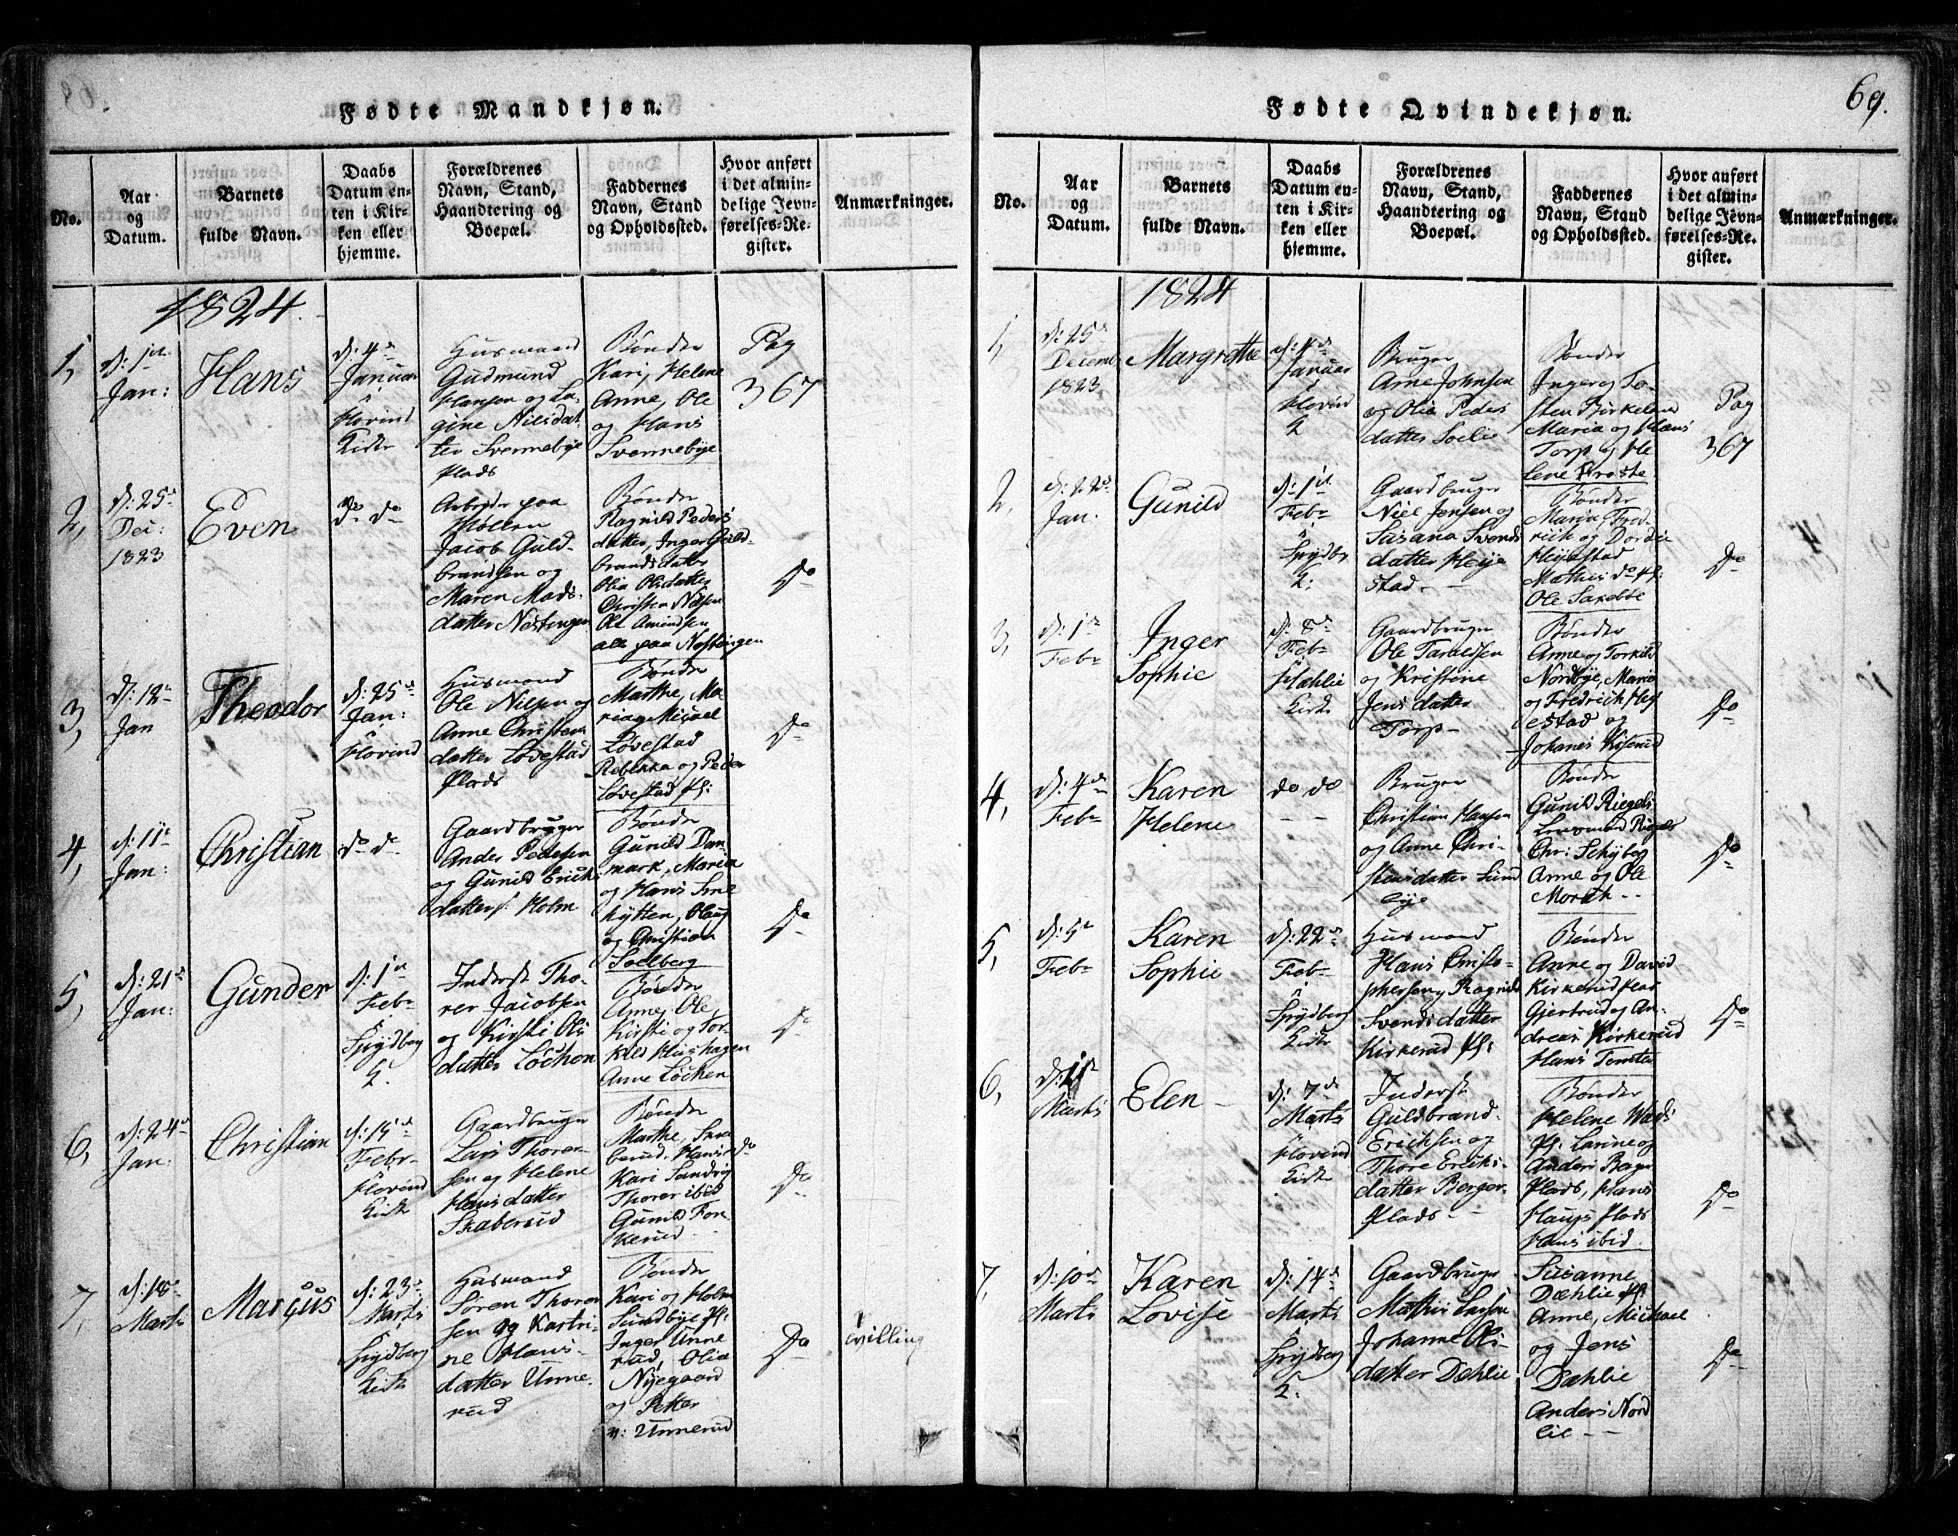 69.
Fødte Mandkjøn.
No.
Aar
og
Datum.
Barnets
fulde Navn.
Daabs
Datum en-
ten i Kir-
ken eller
hjemme.
Forældrenes
Navn, Stand,
Haandtering og
Boepæl.
Faddernes
Navn, Stand
og Opholdssted.
Hvor anført
i det almin-
delige Jevn-
førelses-Re-
gister.
Anmærkninger.
1824.
1,
d: 1ste
Jan:
Hans
d: 4de
Januar
i
Hovind
Kirke
Husmand
Gudmund
Hansen og La-
gine Nilsdat-
ter Svennebye
Plads
Bønder
Kari, Helene
Anne, Ole
og Hans
Svennebye
Pag
367
2,
d: 25de
Dec:
1823
Even
do do
Arbejder paa
Møllen
Jacob Guld-
brandsen og
Maren Mads-
datter Nøstingen
Bønder
Ragnild Peders
datter, Inger Guld-
brandsdatter
Olia Olsdatter
Christen Nilsen
Ole Amundsen
alle paa Nøstingen
do
3,
d: 12te
Jan
Theodor
d: 25de
Jan:
i
Hovind
Husmand
Ole Nilsen og
Anne Christens
datter Løvestad
Plads
Bønder
Marthe, Ma-
ria og Michael
Løvestad
Rebekka og Peder
Løvestad Pl:
do
4,
d: 11te
Jan:
Christian
do do
Gaardbruger
Anders Pedersen
og Gunild Erichs
datter Holm
Bønder
Gunild Dan-
mark, Maria
og Hans Sme
hytten, Olaug
og Christian
Soelberg
do
5,
d: 21de
Jan:
Gunder
d: 1ste
Feb
i
Spydberg
K.
Inderst Tho-
rer Jacobsen
og Kirsti Ols
datter Løchen
Bønder
Anne, Ole
Kirsti og Tor-
kild Hushagen
Anne Løchen
do
6,
d: 24de
Jan:
Christian
d: 15de
Febr
i
Hovind
Kirke
Gaardbruger
Lars Thorer-
sen og Helene
Hansdatter
Skaberud
Bønder
Marthe, Ska
berud, Hans do
Kari Sandvig
Thorer ibid
Gunild For-
kerud
do
7,
d: 18de
Marts
Marcus
d: 23de
Marts
i
Spydberg
Kirke
Husmand
Søren Thorer
sen og Kastri-
ne Hans-
datter Unne-
rud
Bønder
Kari og Holm
Sundbye Pl:
Inger Unne
rud, Olia
Nyegaard
og Petter
Unnerud
do
Tvilling
Fødte Qvindekjøn.
No.
Aar
og
Datum.
Barnets
fulde Navn.
Daabs
Datum en-
ten i Kir-
ken eller
hjemme.
Forældrenes
Navn, Stand,
Haandtering og
Boepæl.
Faddernes
Navn, Stand
og Opholdssted.
Hvor anført
i det almin-
delige Jevn-
førelses-Re-
gister.
Anmærkninger.
1824
1,
d: 25de
Decemb
1823
Margrethe
d: 4de
Januar
i
Hovind
K
Bruger
Arne Johnsen
og Olia Peders
datter Soelie
Bønder
Inger og To-
sten Birkeland
Maria og Hans
Torp og He
lene Froste
Pag
367
2,
d: 22de
Jan:
Gunild
d: 1ste
Feb
i
Spydbr
K:
Gaardbruger
Niel Jensen og
Susana Svends
datter Heije
stad
Bønder
Maria, Fred-
rich og Dordie
Heijestad
Mathis do Pl:
Ole Saxebøe
do
3,
d: 1ste
Feb
Inger
Sophie
d: 8de
Feb
i
Hæhlie
Kirke
Gaardbruger
Ole Taraldsen
og Kristine
Jensdatter
Torp
Bønder
Anne og Torkild
Nordbye, Maria
og Fredrich Hej
estad og
Johanes Kiserud
do
4,
d: 4de
Feb
Karen
Helene
do do
Bruger
Christian Hansen
og Anne Chri-
stensdatter Lund
bye
Bønder
Gunild Riegels
Christ: Schyberg
Anne og Ole
Morch
do
5,
d: 5te
Feb
Karen
Sophie
d: 22de
Feb
i
Spydberg
Kirke
Husmand
Hans Christo-
phersen og Ragnild
Svendsdatter
Kirkerud Pl:
Bønder
Anne og David
Kirkerud
Gjertrud og An-
dreas Kirkerud
Hans Temten
do
6,
Marts
Elen
d: 7de
Marts
i
Hovind
Kirke
Inderst
Guldbrand
Erichsen og
Thore Erichs-
datter Berger
Plads
Bønder
Helene
Pl: Larine og
Anders
Plads, Hans
Haugs Plads
Hans ibid.
do
7,
d: 10de
Marts
Karen
Lovise
d: 14de
Marts
i
Spydberg
K.
Gaardbruger
Mathis Larsen
Johanne Ols
datter Dæhlie
Susanne
Dæhlie Pl:
Anne, Michael
og Jens
Dæhlie
Anders Nord
lie
do